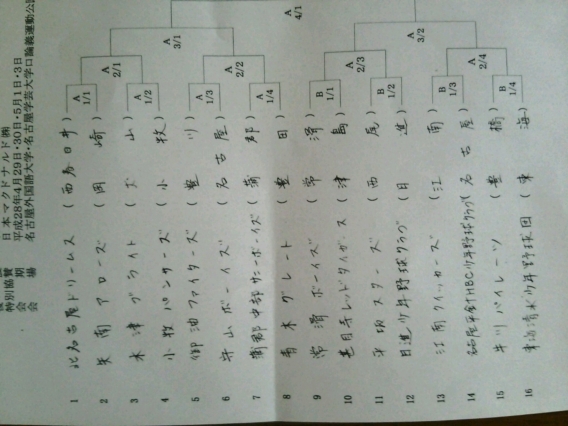 特別協賛 日本マクドナルド㈱
会期 平成28年4月29日・30日・5月1日・3日
会場 名古屋外国語大学・名古屋学芸大学口論義運動公
A 4/1
A 3/1
A 3/2
A 2/1
A 2/2
A 2/3
A 2/4
A 1/1
A 1/2
A 1/3
A 1/4
B 1/1
B 1/2
B 1/3
B 1/4
1 北名古屋ドリームス (西春日井)
2 矢南アローズ (岡崎)
3 木津ブライト (犬山)
4 小牧パンサーズ (小牧)
5 御油ファイターズ (豊川)
6 守山ボーイズ (名古屋)
7 蒲郡中部サニーボーイズ (蒲郡)
8 青木グレート (豊田)
9 常滑ボーイズ (常滑)
10 甚目寺レッドタイガース (津島)
11 平坂スターズ (西尾)
12 日進少年野球クラブ (日進)
13 江南クイッカーズ (江南)
14 名古屋平針HBC少年野球クラブ (名古屋)
15 牛川パイレーツ (豊橋)
16 東海清水少年野球団 (東海)